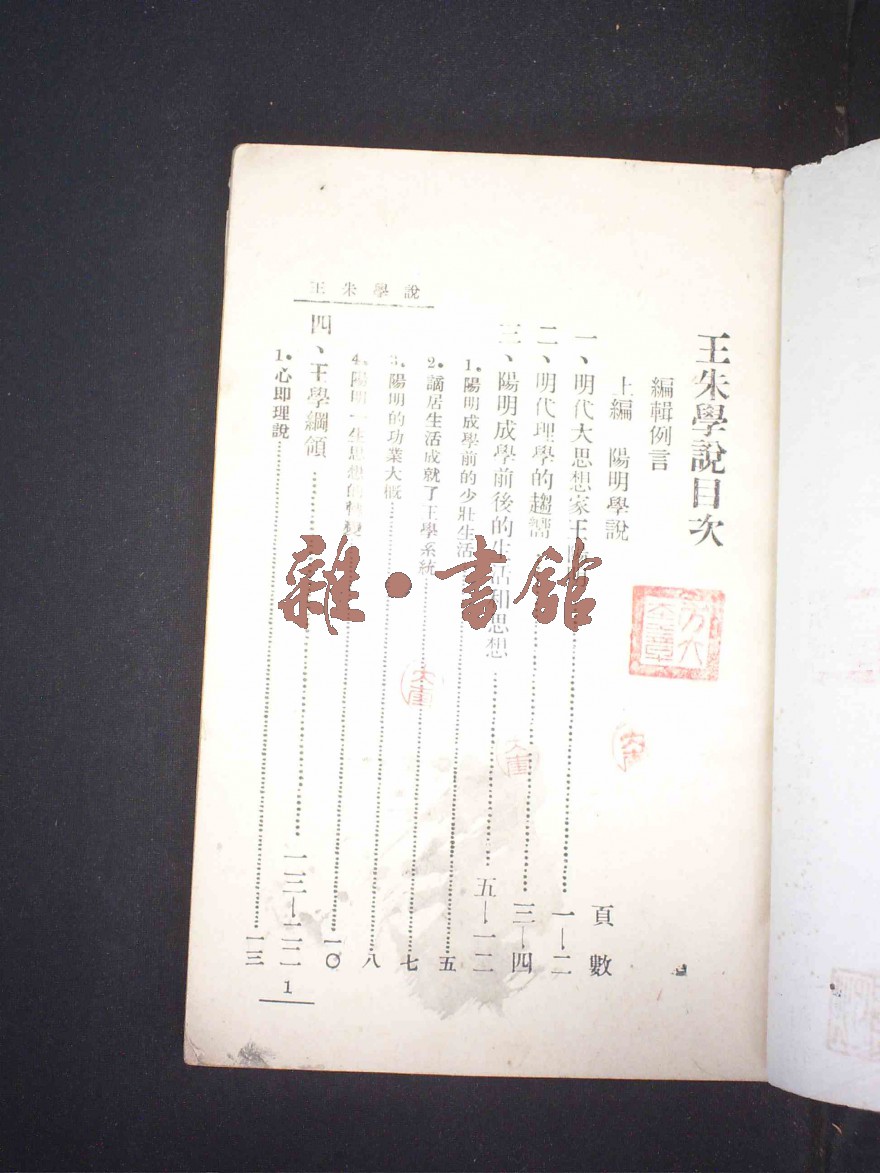 王朱學說目次
編輯例言
上編 陽明學說
頁數
一、明代大思想家王陽明……一—二
二、明代理學的趨嚮……三—四
三、陽明成學前後的生活和思想……五—一二
1.陽明成學前的少壯生活……五
2.謫居生活成就了王學系統……七
3.陽明的功業大概……八
4.陽明一生思想的轉變……一〇
四、王學綱領……一三—二二
1.心即理說……一三
王朱學說
1
雜·書館